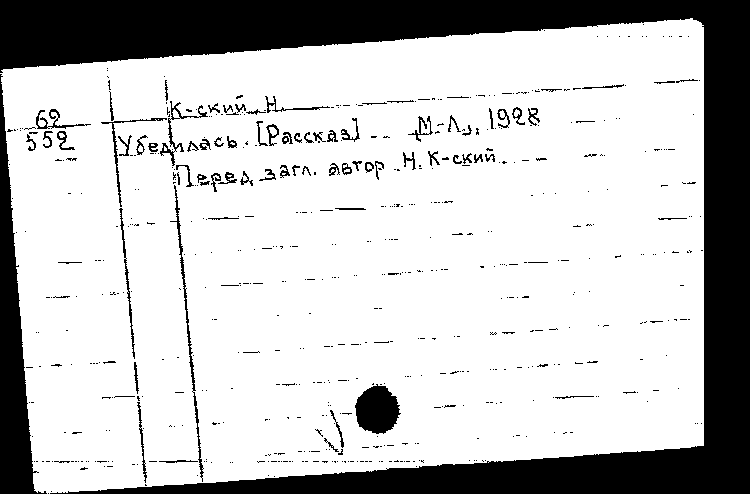 62
552
К-ский Н.
Убедилась. [Рассказ] М.-Л., 1928
Перед загл. автор Н. К-ский.